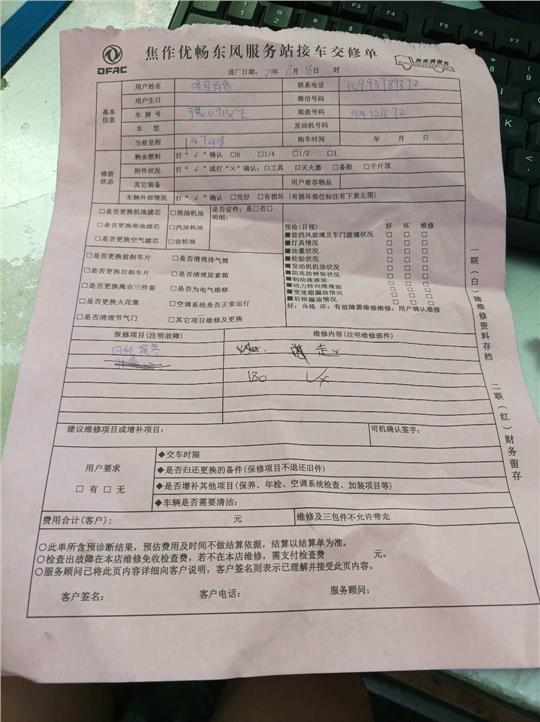 DFAC
焦作优畅东风服务站接车交修单
进厂日期: 年 月 日 时
基本信息
用户姓名 联系电话 15993789892
用户生日 微信号码
车牌号 底盘号码 NA121692
车型 发动机号码
当前里程 14748 购车时间: 年 月 日
修前状态
剩余燃料 打“√”确认 □0 □1/4 □1/2 □1
附件状况 打“√”或打“×”确认:□工具 □灭火器 □备胎 □千斤顶
其它装备 用户寄存物品
车辆外部情况 打“√”确认 □完好 □有损坏(有损坏部位标注有下表左图)
□是否更换机油滤芯 □柴油机油 是否定件:是□否□
□是否更换柴油滤芯 □汽油机油 明细:
□是否更换空气滤芯 □齿轮油
□是否更换前刹车片 □是否清理排气筒
□是否更换后刹车片 □是否清理尿素箱
□是否更换离合三件套 □是否为电气维修
□是否更换火花塞 □空调系统是否正常运行
□是否清理节气门 □其它项目维修及更换
预检(目视) 好 坏 维修
■前挡风玻璃及车门玻璃状况 □ □ □
■灯具情况 □ □ □
■油量状况 □ □ □
■轮胎状况 □ □ □
■发动机机油状况 □ □ □
■防冻防锈液状况 □ □ □
■制动液液面 □ □ □
■动力转向液液面 □ □ □
■变速箱漏油情况 □ □ □
■后桥漏油情况 □ □ □
好:合格 坏:有故障需维修维修:用户确认维修
报修项目(注明故障) 维修内容(注明维修部件)
走
130
建议维修项目或增补项目: 司机确认签字:
用户要求
□有 □无
◆交车时限
◆是否归还更换的备件(保修项目不退还旧件)
◆是否增补其他项目(保养、年检、空调系统检查、加装项目等)
◆车辆是否需要清洁:
费用合计(客户): 元 维修及三包件不允许带走
○此单所含预诊断结果,预估费用及时间不做结算依据,结算以结算单为准。
○检查出故障在本店维修免收检查费,若不在本店维修,需支付检查费 元。
○服务顾问已将此页内容详细向客户说明,客户签名则表示已理解并接受此页内容。
客户签名: 客户电话: 服务顾问:
一联(白)随维修资料存档
二联(红)财务留存